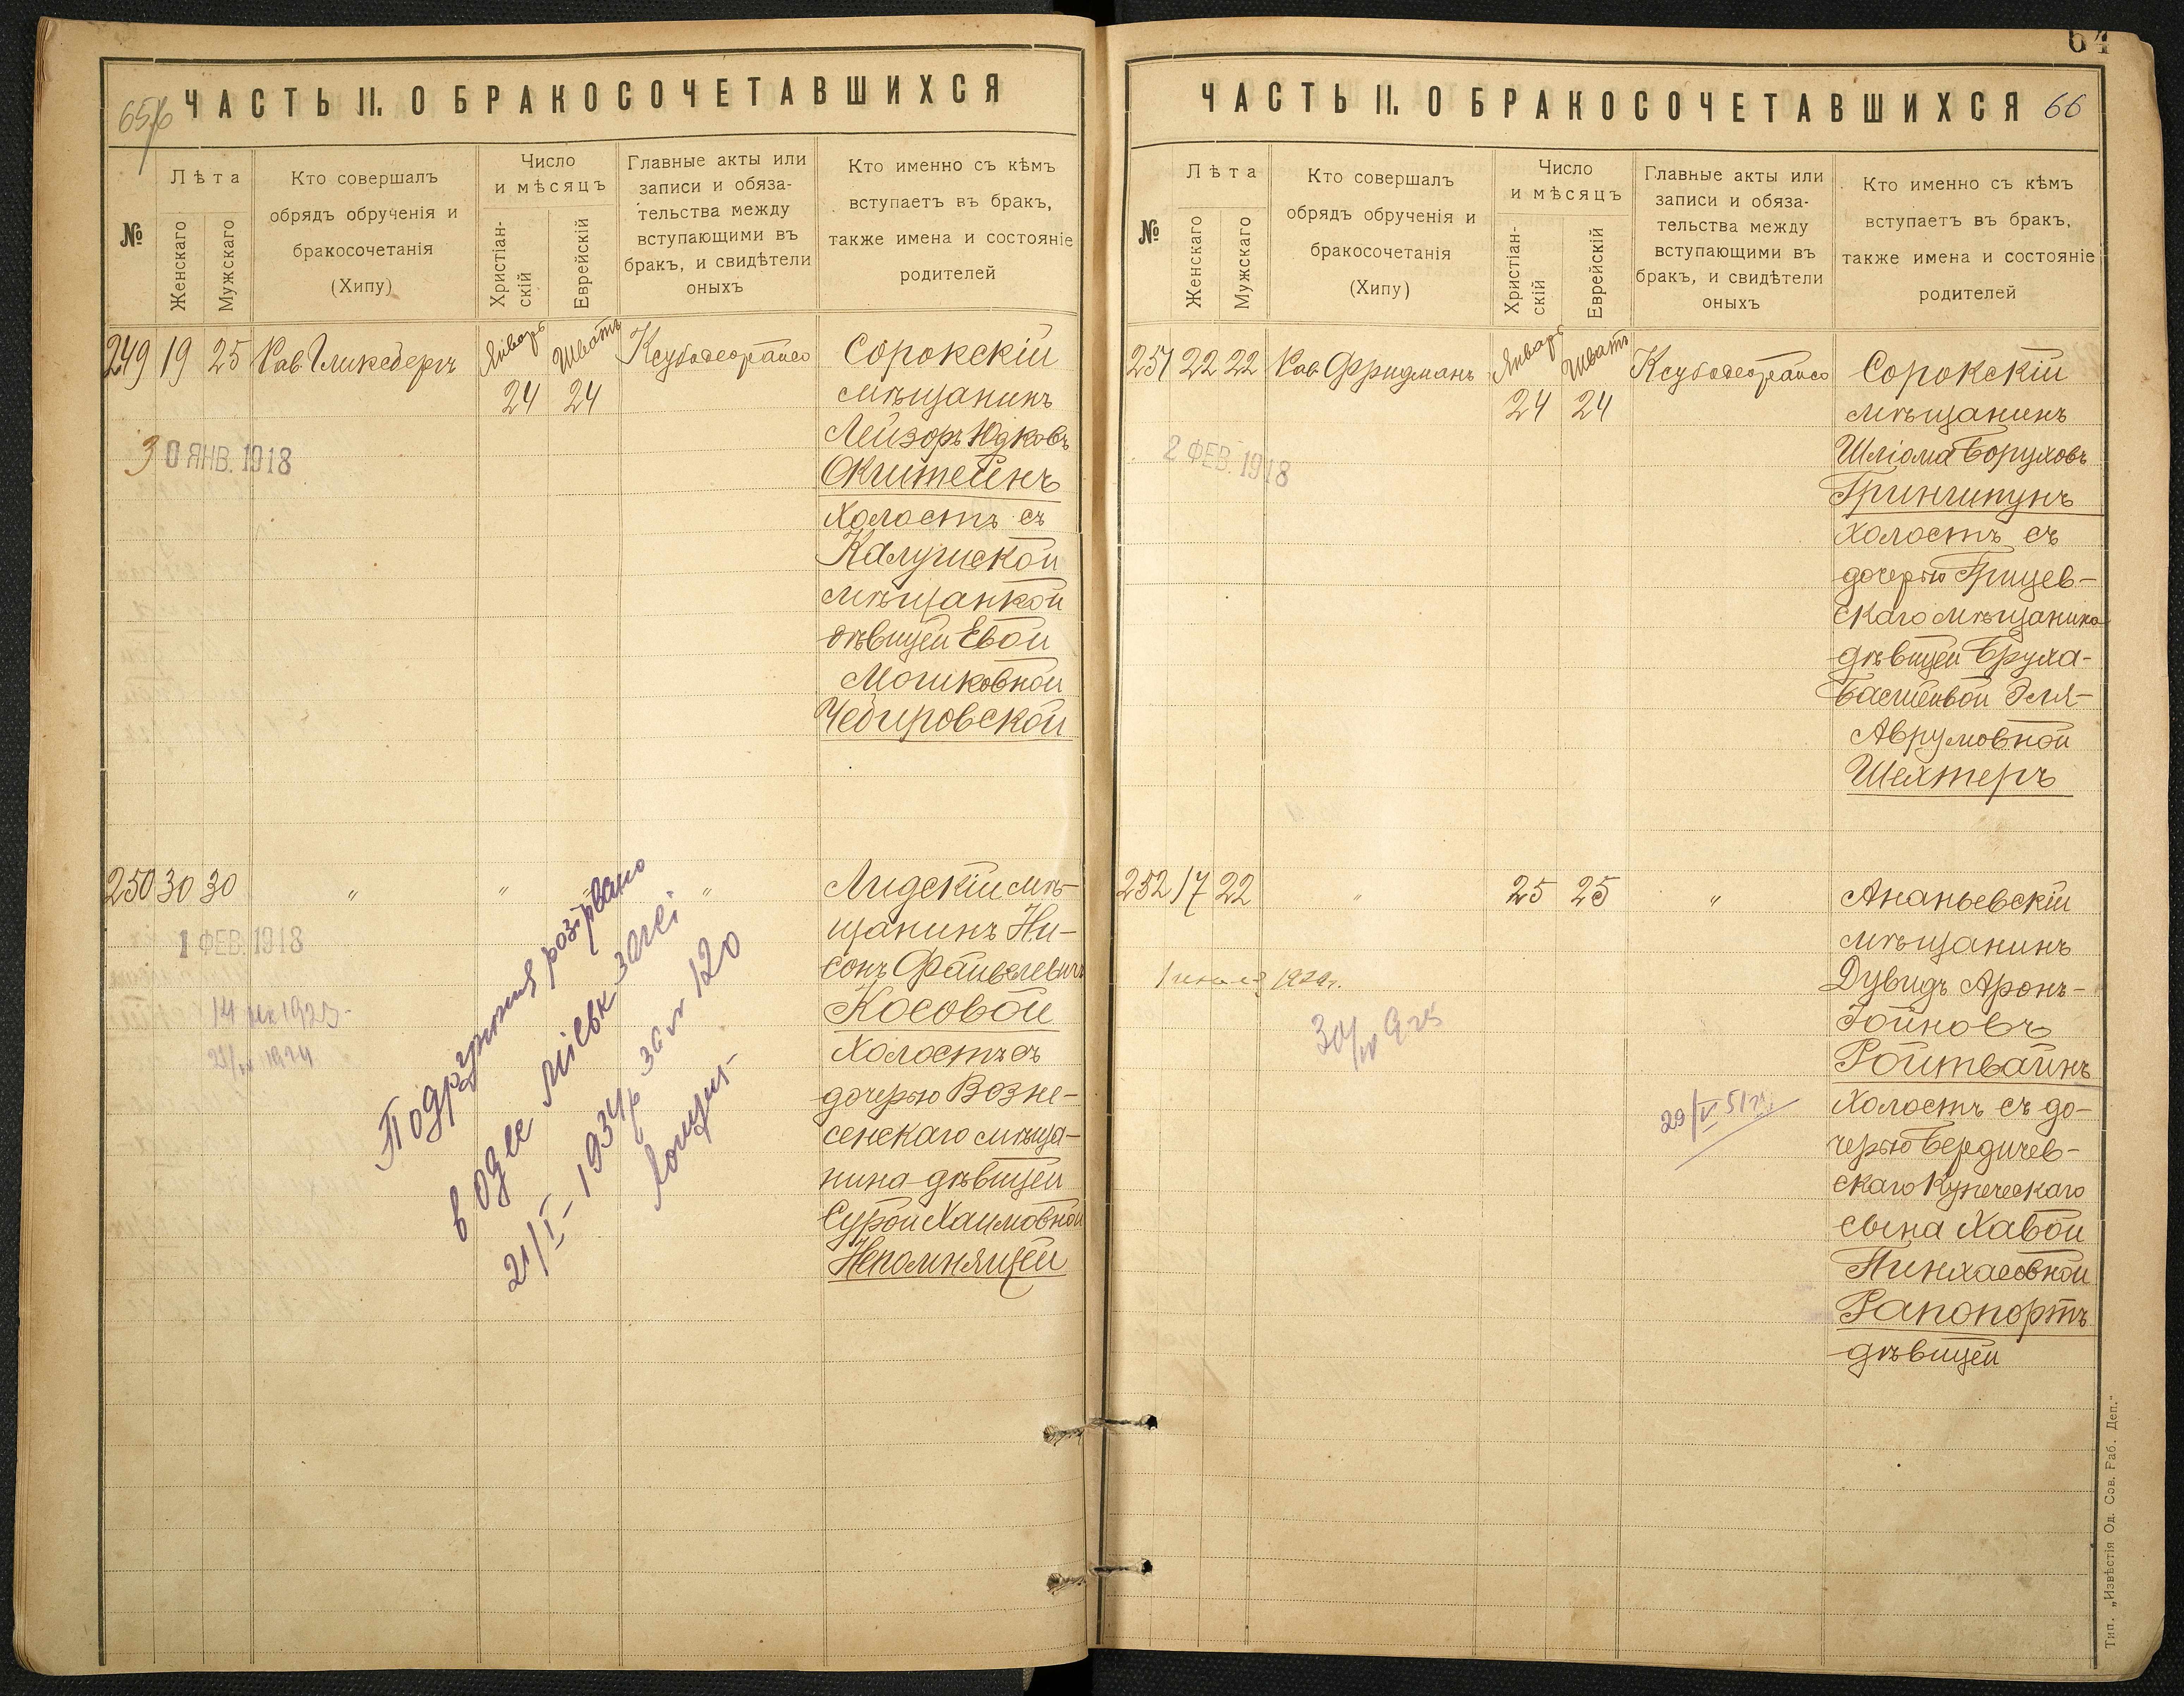 65/6
ЧАСТЬ II. О БРАКОСОЧЕТАВШИХСЯ
№
Лѣта
Женскаго
Мужскаго
Кто совершалъ
обрядъ обрученія и
бракосочетанія
(Хипу)
Число
и мѣсяцъ
Христіан-
скій
Еврейскій
Главные акты или
записи и обяза-
тельства между
вступающими въ
бракъ, и свидѣтели
оныхъ
Кто именно съ кѣмъ
вступаетъ въ бракъ,
также имена и состояніе
родителей
249 19 25 Рав. Гликсбергъ Январь Шватъ
24 24
30 ЯНВ. 1918
Сорокскій
мѣщанинъ
Лейзоръ Юдковъ
Окштейнъ
холостъ съ
Калушской
мѣщанкой
дѣвицей Евой
Мошковной
Чебировской
250 30 30 " " "
1 ФЕВ. 1918
21/IV 1924
Лидскій мѣ-
щанинъ Ни-
сонъ Файвелевичъ
Косовой
холостъ съ
дочерью Возне-
сенскаго мѣща-
нина дѣвицей
Сурой Хаимовной
Непомнящей
Подружжя розірвано
в Одес міськ загсі
21/I - 1934 р за № 120
64
ЧАСТЬ II. О БРАКОСОЧЕТАВШИХСЯ 66
№
Лѣта
Женскаго
Мужскаго
Кто совершалъ
обрядъ обрученія и
бракосочетанія
(Хипу)
Число
и мѣсяцъ
Христіан-
скій
Еврейскій
Главные акты или
записи и обяза-
тельства между
вступающими въ
бракъ, и свидѣтели
оныхъ
Кто именно съ кѣмъ
вступаетъ въ бракъ,
также имена и состояніе
родителей
251 22 22 Рав. Фридманъ Январь Шватъ
24 24
2 ФЕВ. 1918
Сорокскій
мѣщанинъ
Шліома Боруховъ
Гринштунъ
холостъ съ
дочерью Грицев-
скаго мѣщанина
дѣвицей Бруха-
Басшевой Эля-
Аврумовной
Шехтеръ
252 17 22 " 25 25 "
29/V 51 г.
Ананьевскій
мѣщанинъ
Дувидъ Аронъ-
Іойновъ
Ройтвайнъ
холостъ съ до-
черью Бердичев-
скаго Купеческаго
сына Хавой
Пинхасовной
Рапопортъ
дѣвицей
Тип. „Извѣстія Од. Сов. Раб. Деп."